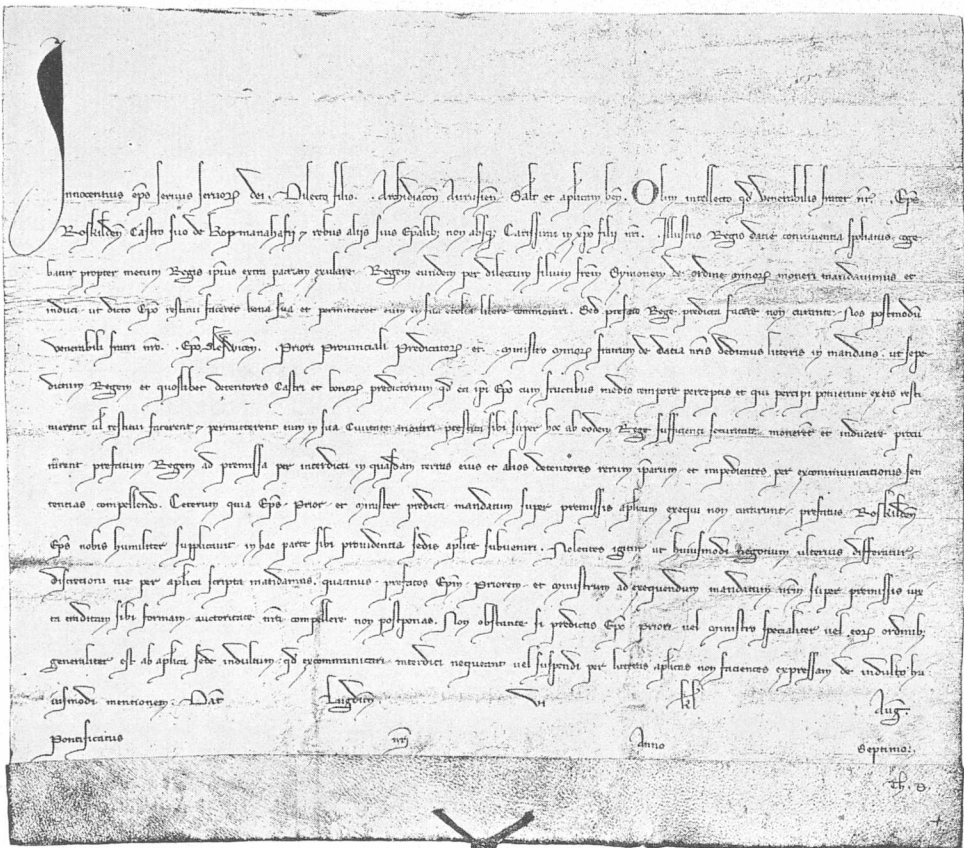 Innocentius eps seruus seruoꝝ dei. Dilecto filio .. Archidiacon Arusien. Salt et aplicam ben. Olim intellecto qd venerabilis frater nr .. Eps
Roskilden Castro suo de Kopmanahafn ⁊ rebus alijs suis Epalib; non absq; Carissimi in xpo filij nri .. Illustris Regis dacie conniuentia spoliatus coge
batur propter metum Regis ipsius extra patriam exulare. Regem eundem per dilectum filium frem Symonem de ordine minoꝝ moneri mandauimus et
induci. ut dicto Epo restitui faceret bona sua et permitteret eum in sua ecclia libere commorari. Sed prefato Rege predicta facere non curante. Nos postmodu
venerabili fratri nro .. Epo Sleswicen .. Priori Prouinciali Predicatoꝝ et .. ministro minoꝝ fratrum de dacia nris dedimus litteris in mandatis. ut sepe
dictum Regem et quoslibet detentores Castri et bonoꝝ predictorum qd ea ipi Epo cum fructibus medio tempore perceptis et qui percipi potuerunt ex eis resti
tuerent ul restitui facerent ⁊ permitterent eum in sua Ciuitate morari prestita sibi super hoc ab eodem Rege sufficienti securitate monere et inducere procu
rarent prefatum Regem ad premissa per interdicti in quasdam terras eius et alios detentores rerum ipsarum et impedientes per excommunicationis sen
tentias compellendo. Ceterum quia Eps. Prior. et minister predicti mandatum super premissis aplicum exequi non curarunt. prefatus Roskilden
Eps nobis humiliter supplicauit in hac parte sibi prouidentia sedis aplice subueniri. Nolentes igitur ut huiusmodi negotium ulterius differatur.
discretioni tue per aplica scripta mandamus. quatinus. prefatos Epm. Priorem. et ministrum ad exequendum mandatum nrm super premissis iux
ta traditam sibi formam. auctoritate nra compellere non postponas. Non obstante si predictis Epo. Priori vel ministro specialiter vel eoꝝ ordinib;
generaliter est ab aplica sede indultum. qd excommunicari. interdici nequeant vel suspendi per litteras aplicas non facientes expressam de indulto hu
iusmodi mentionem. Dat Lugdun. vi kl Aug
Pontificatus nri Anno Septimo.